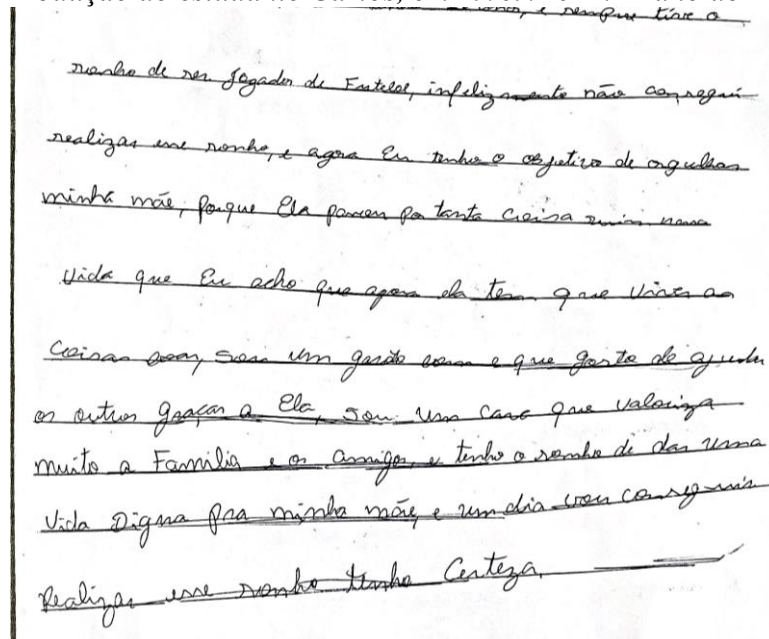 e sempre tive o
sonho de ser Jogador de Futebol, infelizmente não consegui
realizar esse sonho, e agora Eu tenho o objetivo de orgulhar
minha mãe, Porque Ela passou por tanta coisa ruim nessa
vida que Eu acho que agora ela tem que viver as
Coisas boas, sou um garoto bom e que gosta de ajudar
os outros graças a Ela, sou um cara que valoriza
muito a Familia e os amigos, e tenho o sonho di dar uma
Vida Digna pra minha mãe, e um dia vou conseguir
Realizar esse sonho tenho Certeza.